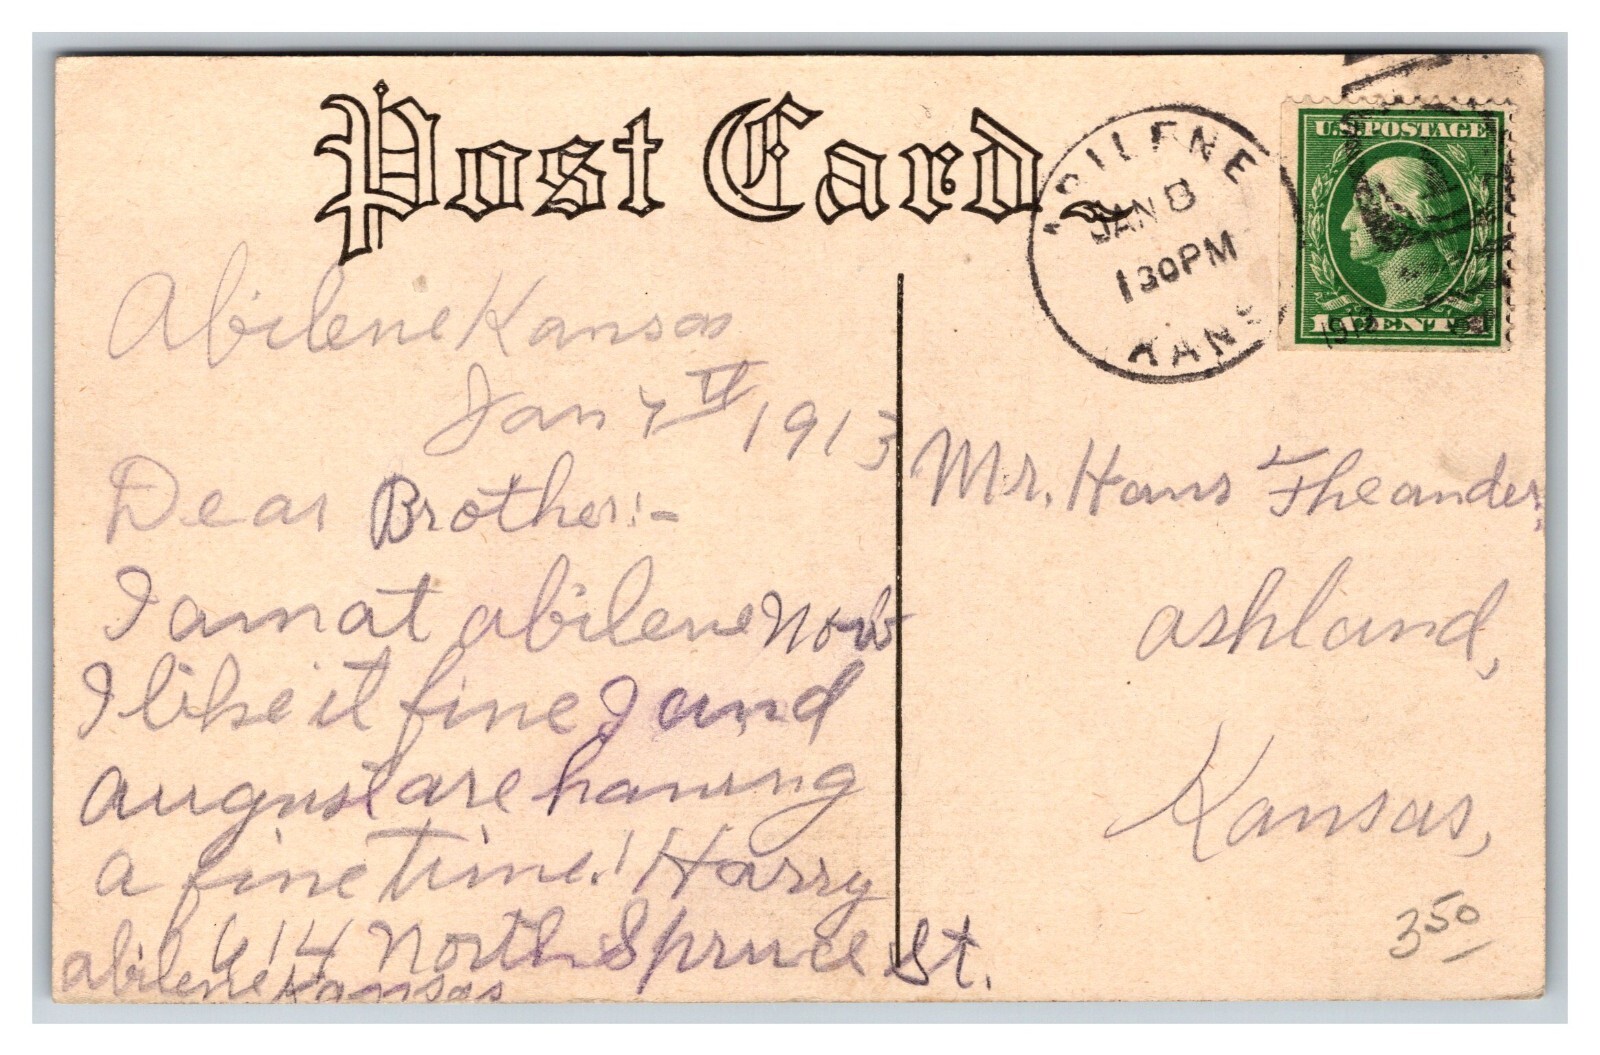 Post Card
ABILENE
JAN 8
130PM
KANS
U.S. POSTAGE
1913
Abilene Kansas
Jan 7 1913
Dear Brother:-
I am at abilene Now
I like it fine I and
august are having
a fine time! Harry
614 North Spruce St.
abilene Kansas
Mr. Hans Theander,
ashland,
Kansas,
350